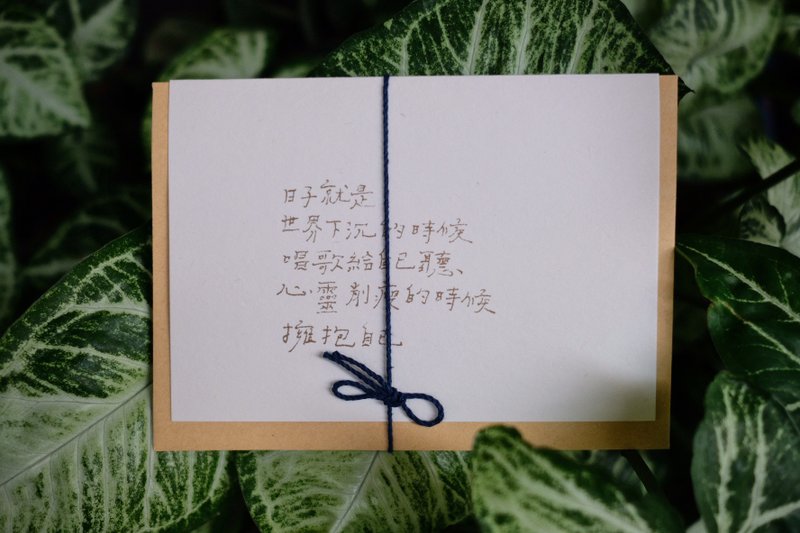 日子就是
世界下沉的時候
唱歌給自己聽、
心靈削瘦的時候
擁抱自己